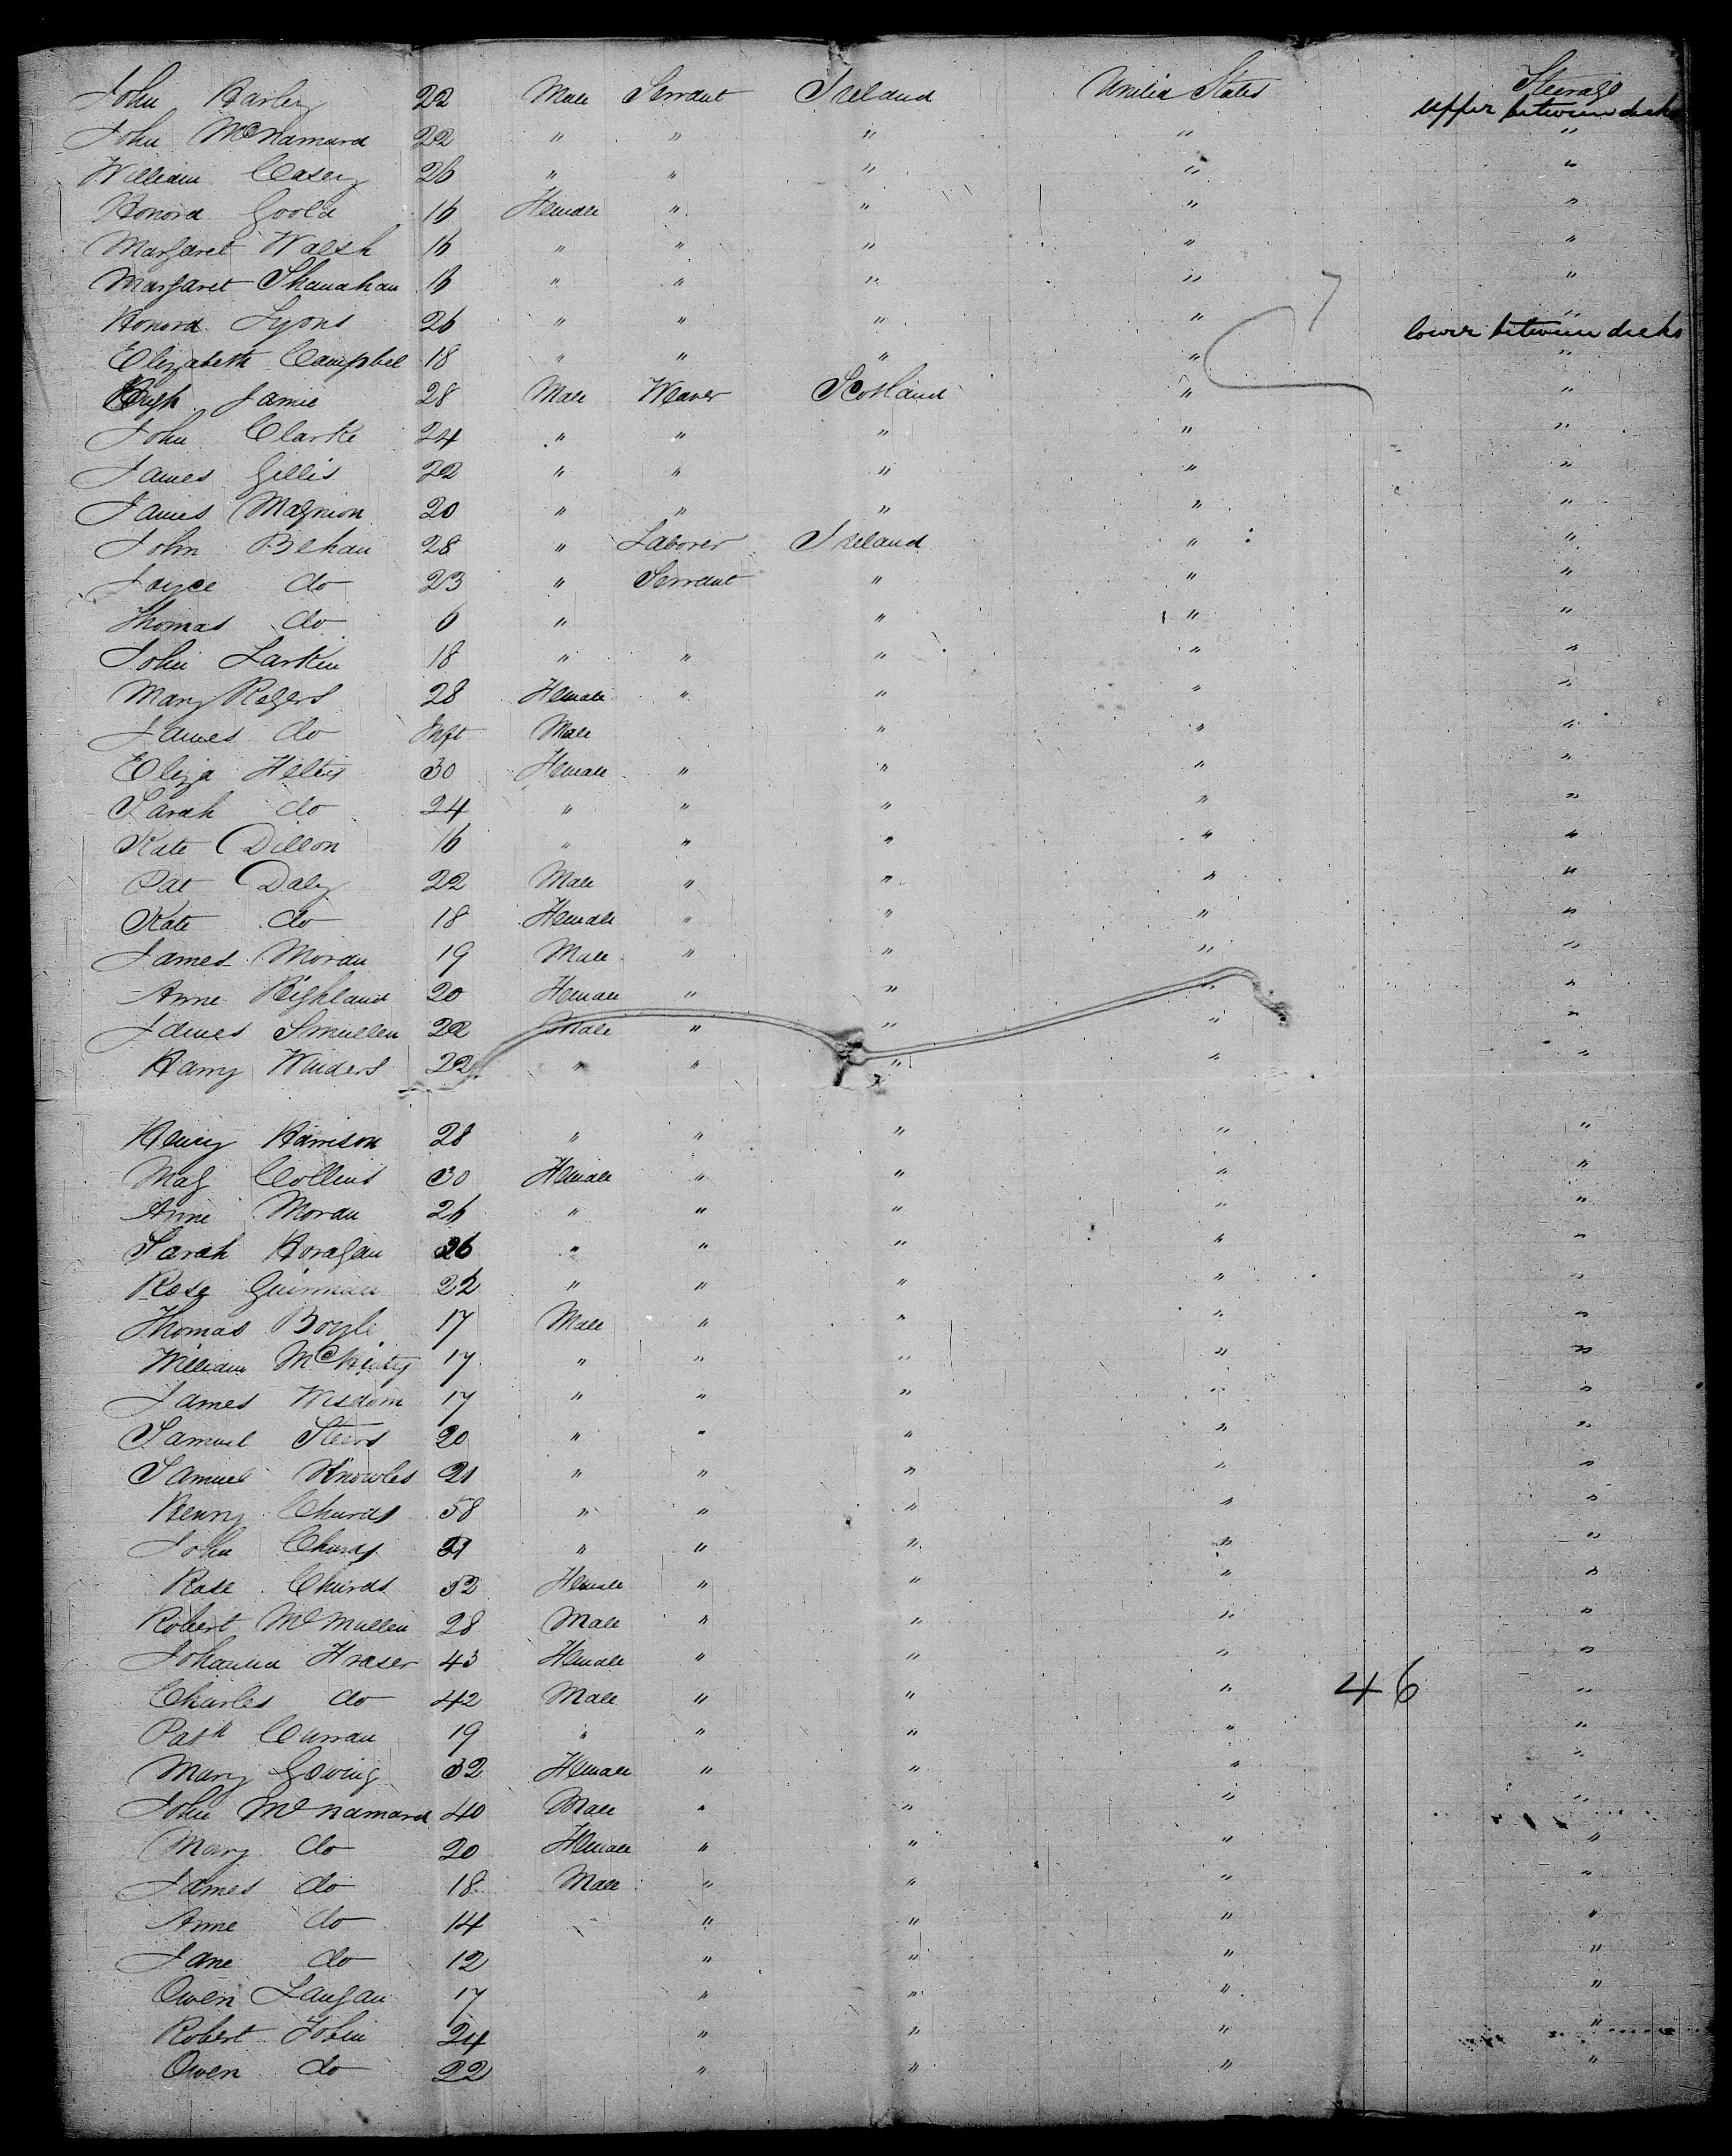 John Harley 22 Male Servant Ireland United States Steerage
upper between decks
John McNamara 22 " " " " "
William Casey 26 " " " " "
Honora Goold 16 Female " " " "
Margaret Walsh 16 " " " " "
Margaret Shanahan 16 " " " " "
Honora Lyons 26 " " " " "
lower between decks
Elizabeth Campbel 18 " " " " "
Hugh Jamie 28 Male Weaver Scotland " "
John Clarke 24 " " " " "
James Gillis 22 " " " " "
James Magnion 20 " " " " "
John Behan 28 " Laborer Ireland " "
Joyce do 23 " Servant " " "
Thomas do 6 " " " "
John Larkin 18 " " " " "
Mary Rogers 28 Female " " " "
James do Inft Male " " "
Eliza 30 Female " " " "
Sarah do 24 " " " " "
Kate Dillon 16 " " " " "
Pat Daly 22 Male " " " "
Kate do 18 Female " " " "
James Moran 19 Male " " " "
Anne Highland 20 Female " " " "
James Smullen 22 Male " " " "
Harry Winders 22 " " " " "
Henry Harrison 28 " " " " "
Mag Collins 30 Female " " " "
Anne Moran 26 " " " " "
Sarah Horagan 26 " " " " "
Rose Guinnan 22 " " " " "
Thomas Boyle 17 Male " " " "
William McKinty 17 " " " " "
James Wisdom 17 " " " " "
Samuel Steers 20 " " " " "
Samuel Knowles 21 " " " " "
Henry Churds 58 " " " " "
John Churds 21 " " " " "
Rose Churds 52 Female " " " "
Robert McMullen 28 Male " " " "
Johanna Fraser 43 Female " " " "
Charles do 42 Male " " " 46 "
Patk Curran 19 " " " " "
Mary Gowing 32 Female " " " "
John McNamara 40 Male " " " "
Mary do 20 Female " " " "
James do 18 Male " " " "
Anne do 14 " " " "
Jane do 12 " " " "
Owen Langan 17 " " " "
Robert Tobin 24 " " " "
Owen do 22 " " " "